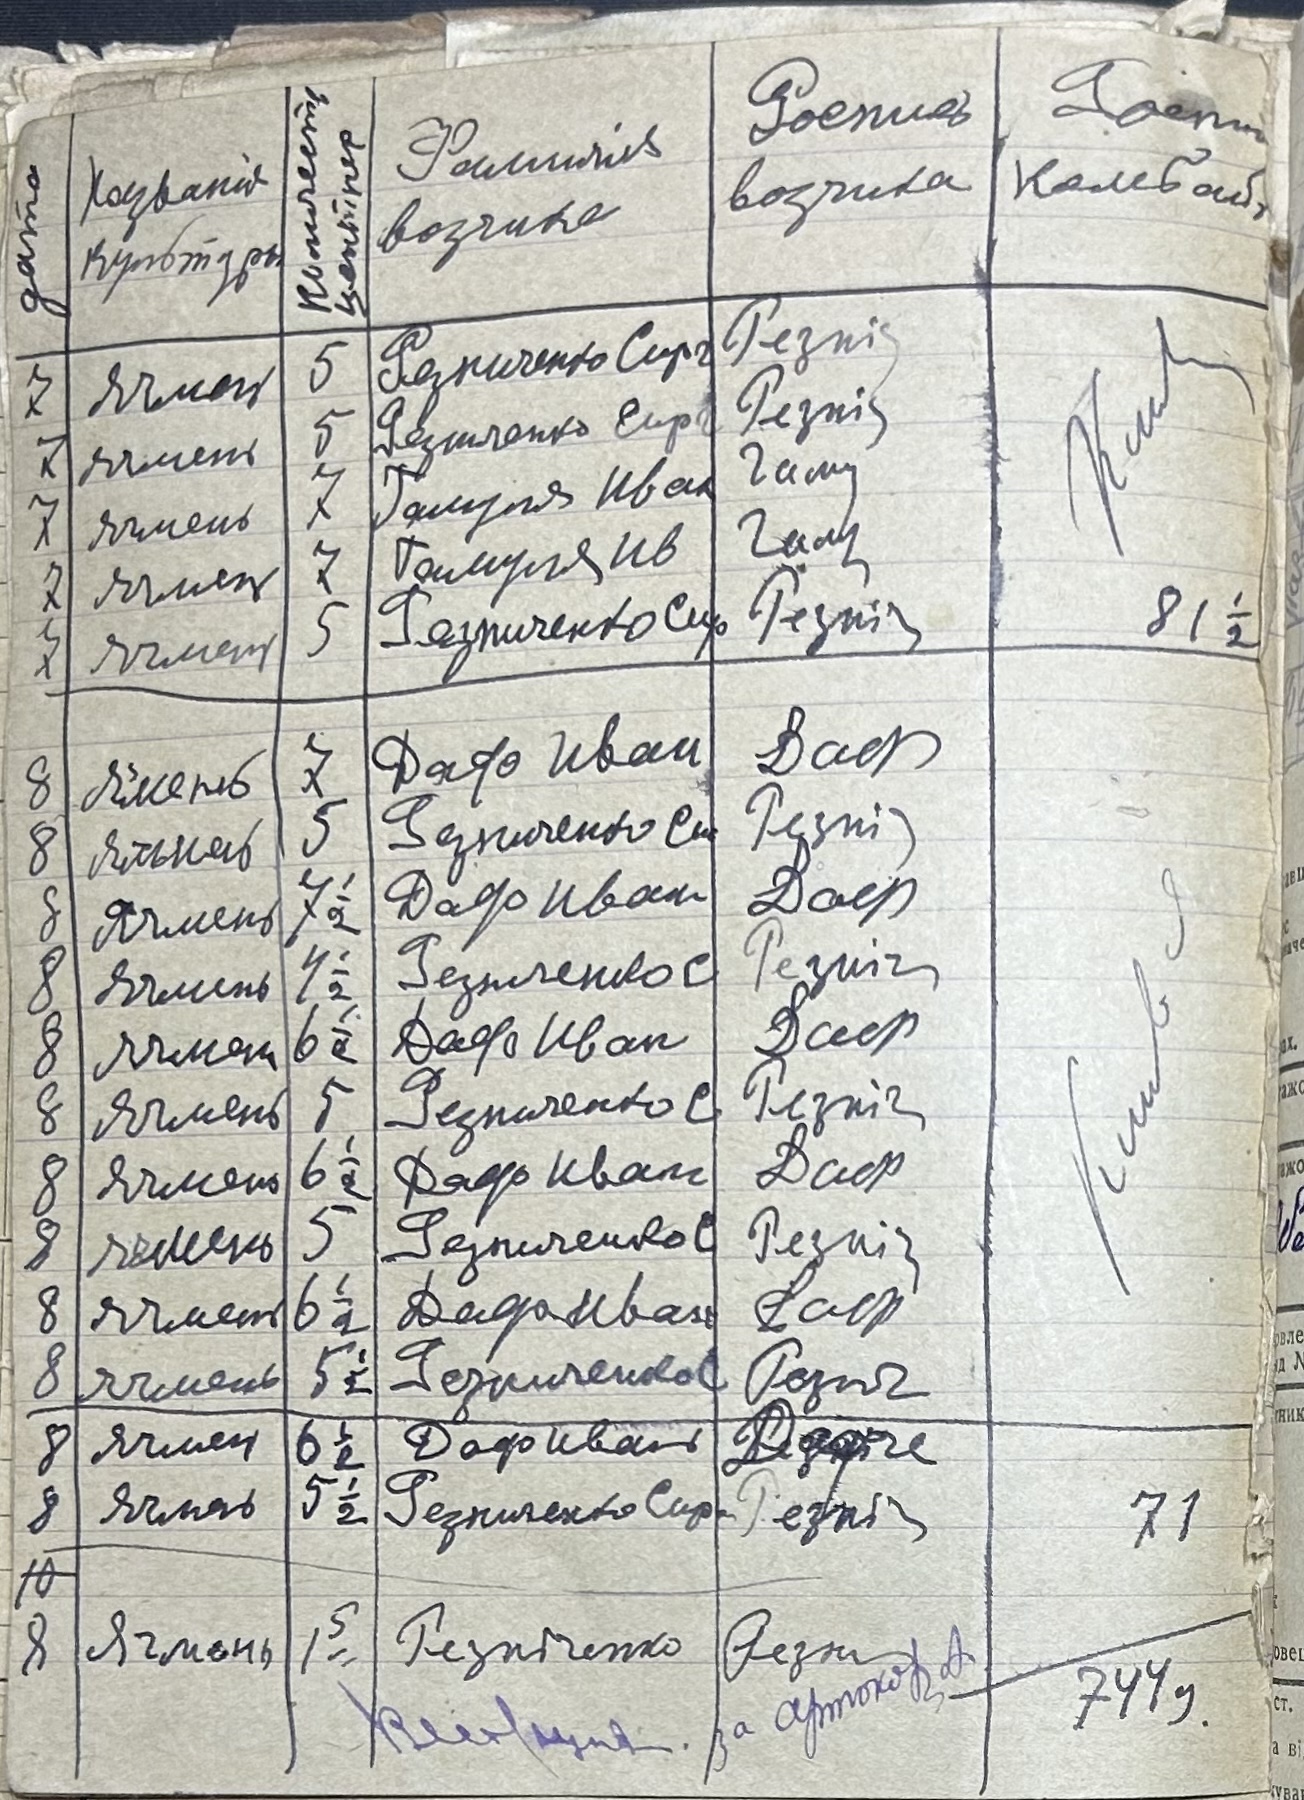 дата Названія культуры Количеств центнер Фамилия возчика Роспись возчика Роспи Камбайн
7 ячмень 5 Резниченко Сирг Резніч
7 ячмень 5 Резниченко Сирг Резніч
7 ячмень 7 Гамуля Иван Гаму
7 ячмень 7 Гамуля Ив Гаму
7 ячмень 5 Резниченко Сир Резніч 81 1/2
8 ячмень 7 Дадо Иван
8 ячмень 5 Резниченко Си Резніч
8 ячмень 7 1/2 Дадо Иван
8 ячмень 4 1/2 Резниченко С Резніч
8 ячмень 6 1/2 Дадо Иван
8 ячмень 5 Резниченко С Резніч
8 ячмень 6 1/2 Дадо Иван
8 ячмень 5 Резниченко С Резніч
8 ячмень 6 1/2 Дадо Иван
8 ячмень 5 1/2 Резниченко С Резнич
8 ячмен 6 1/2 Дадо Иван
8 ячмень 5 1/2 Резниченко Сир Резніч 71
10
8 Ячмень 1 5 Резніченко Резни
за 744